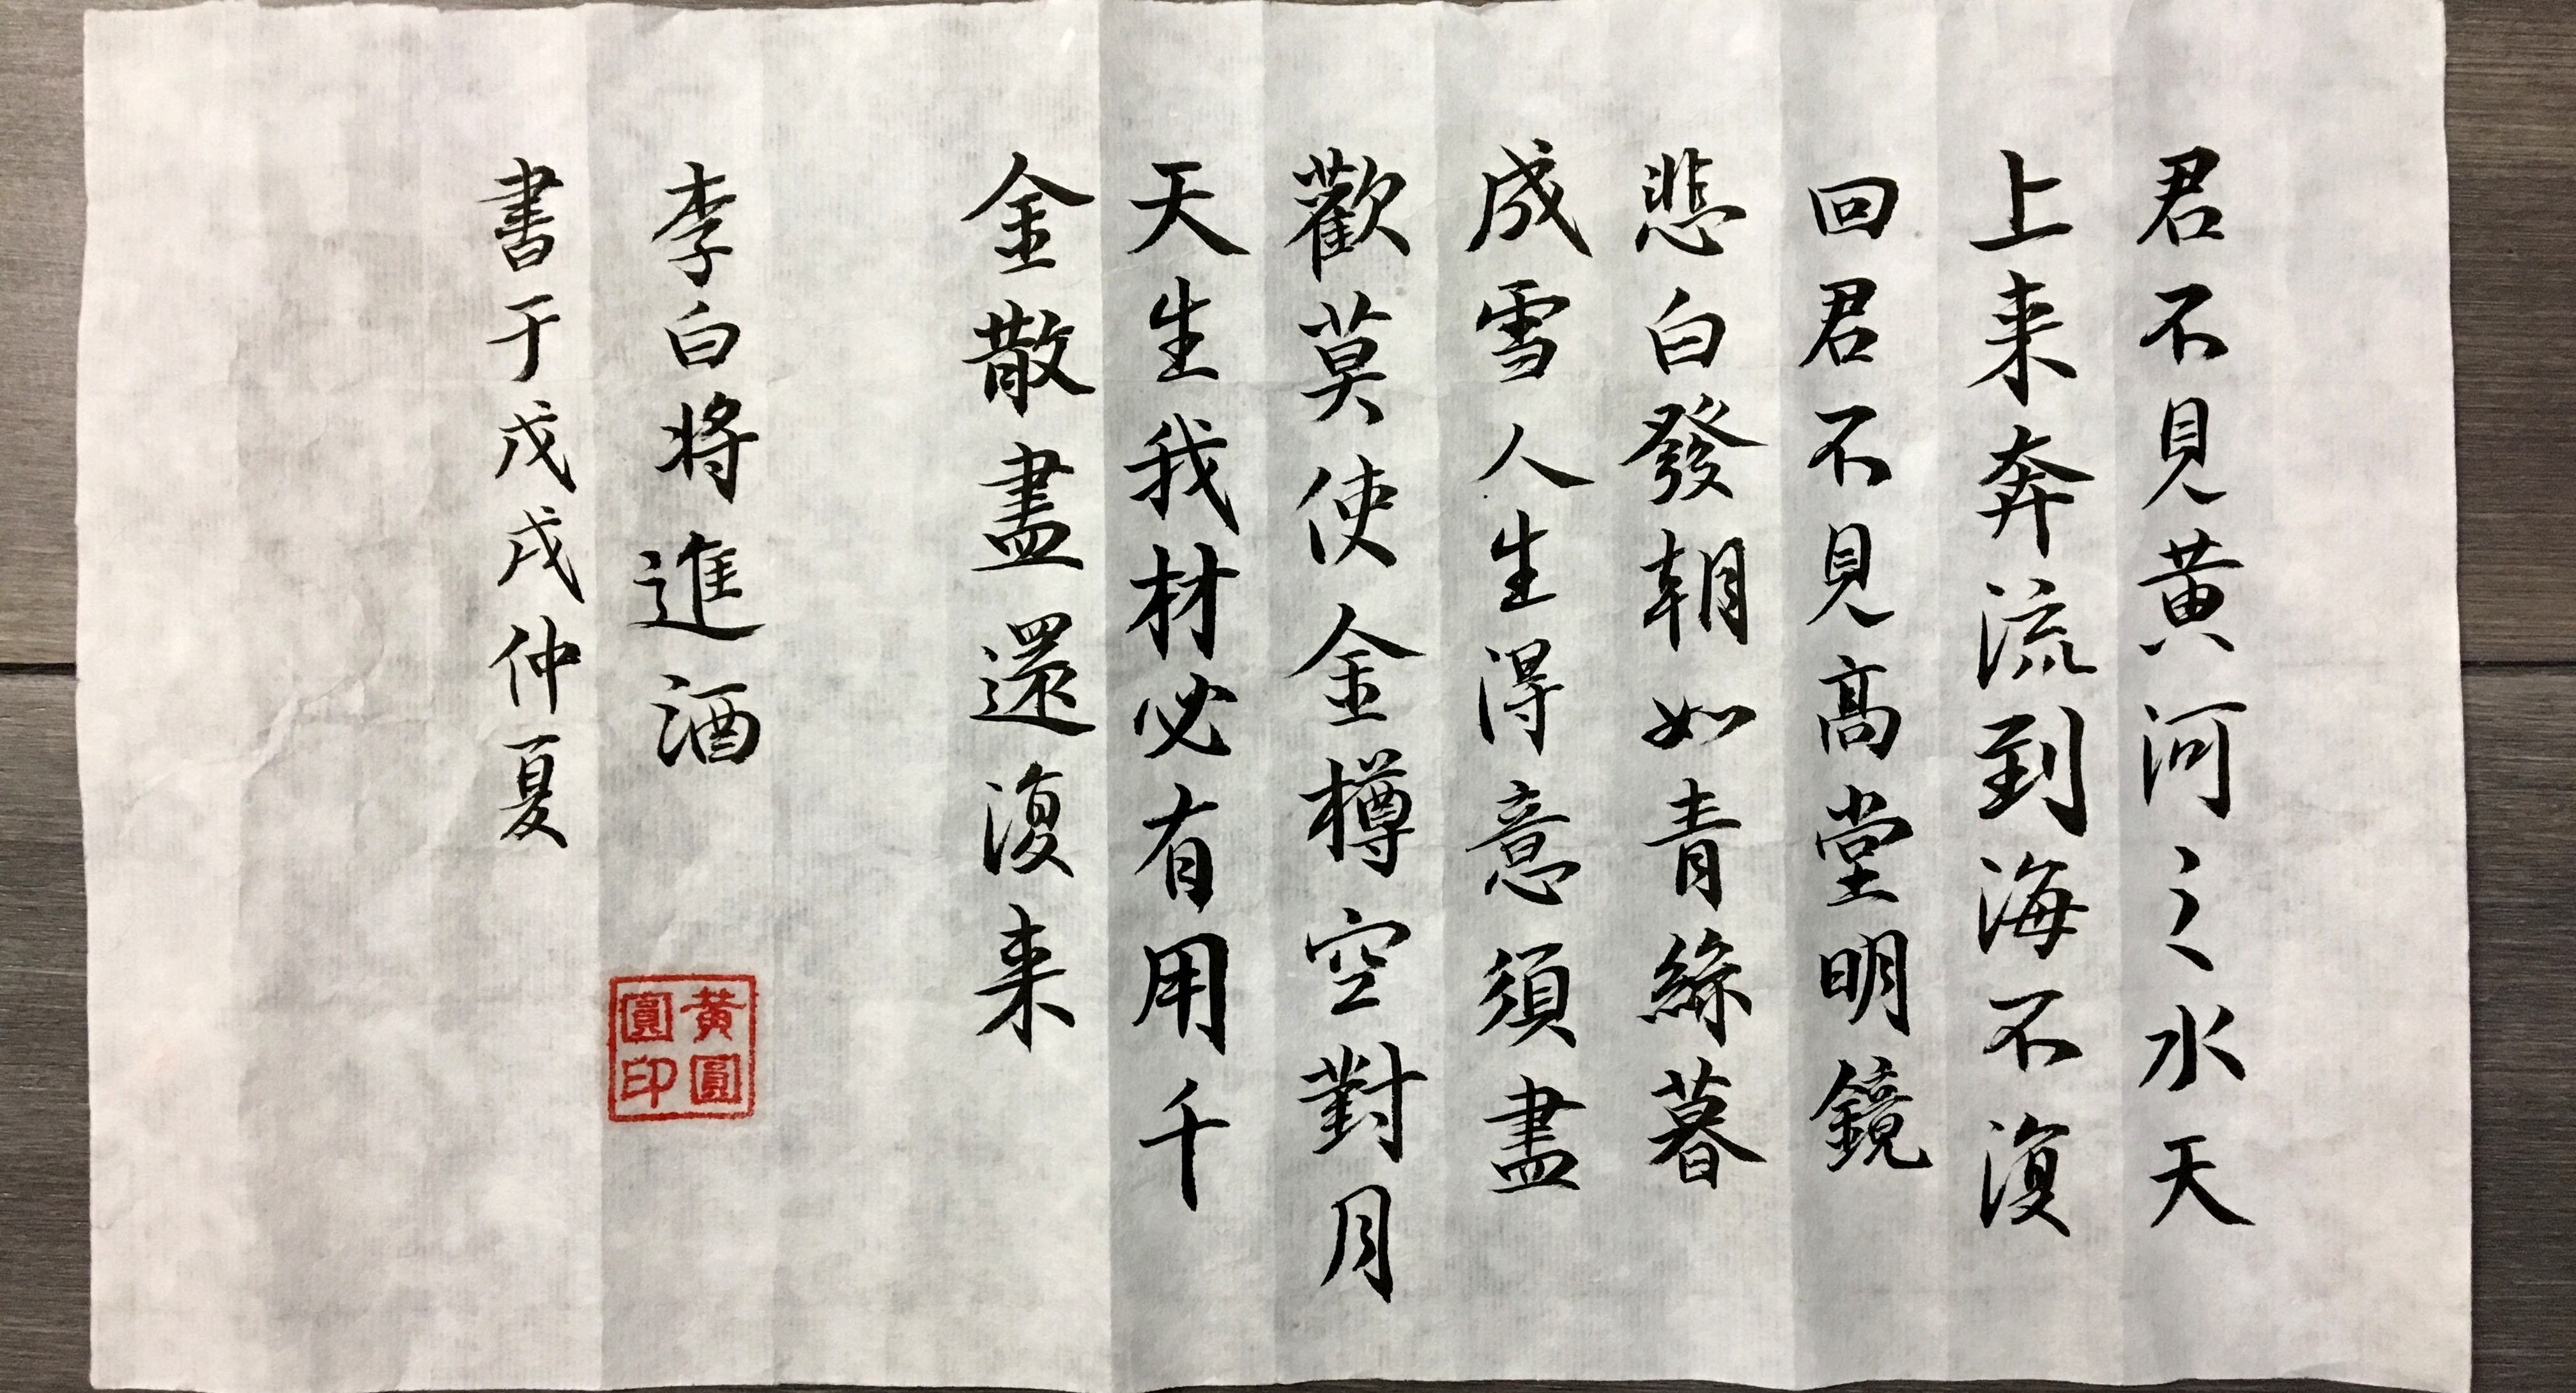 君不見黄河之水天
上来奔流到海不復
回君不見高堂明鏡
悲白發朝如青絲暮
成雪人生得意須盡
歡莫使金樽空對月
天生我材必有用千
金散盡還復来
李白将進酒
書于戊戌仲夏
黃圓
圓印